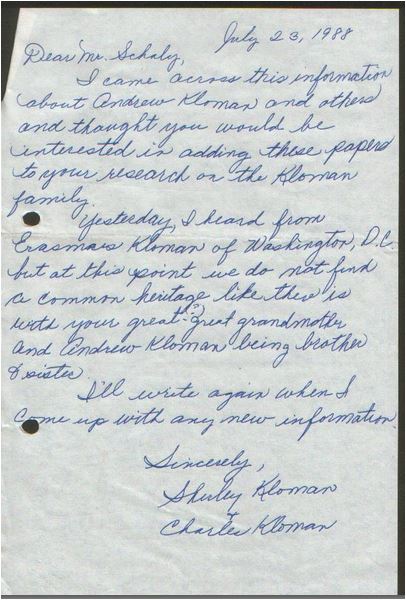 July 23, 1988
Dear Mr. Schaly,
I came across this information
about Andrew Kloman and others
and thought you would be
interested in adding these papers
to your research on the Kloman
family.
Yesterday, I heard from
Erasmus Kloman of Washington, D.C.
but at this point we do not find
a common heritage like there is
with your great-great grandmother
and Andrew Kloman being brother
& sister
I'll write again when I
come up with any new information.
Sincerely,
Shirley Kloman
+
Charles Kloman